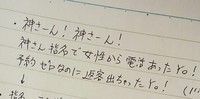 ・神さーん！神さーん！
神さん指名で女性から電話あったYo！
予約ゼロなのに返客出ちゃったYo！(
↓
指名